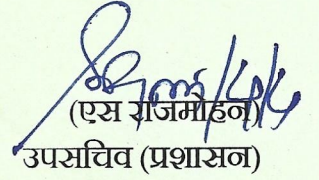 (एस राजमोहन)
उपसचिव (प्रशासन)